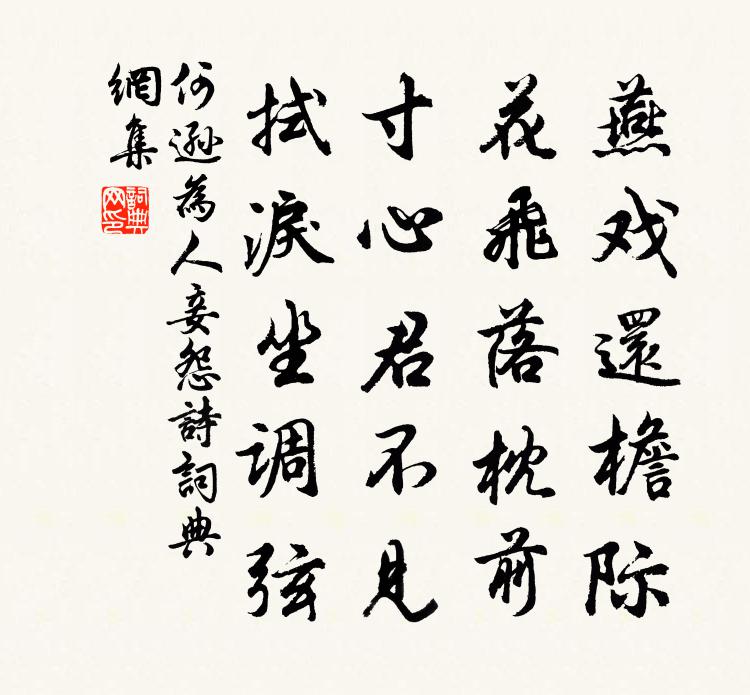 燕戏還檐际
花飛落枕前
寸心君不见
拭淚坐调弦
何遜為人妾怨詩詞典
網集
詞典
网印